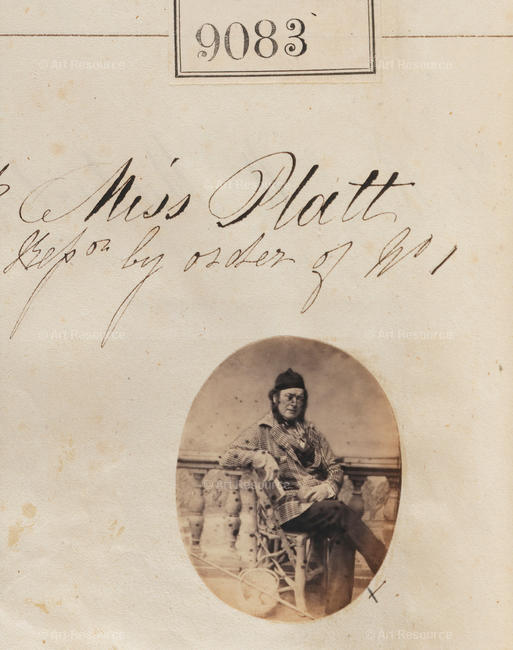 9083
Miss Platt
Repon by order of No 1
x
© Art Resource
© Art Resource
© Art Resource
© Art Resource
© Art Resource
© Art Resource
© Art Resource
© Art Resource
© Art Resource
© Art Resource